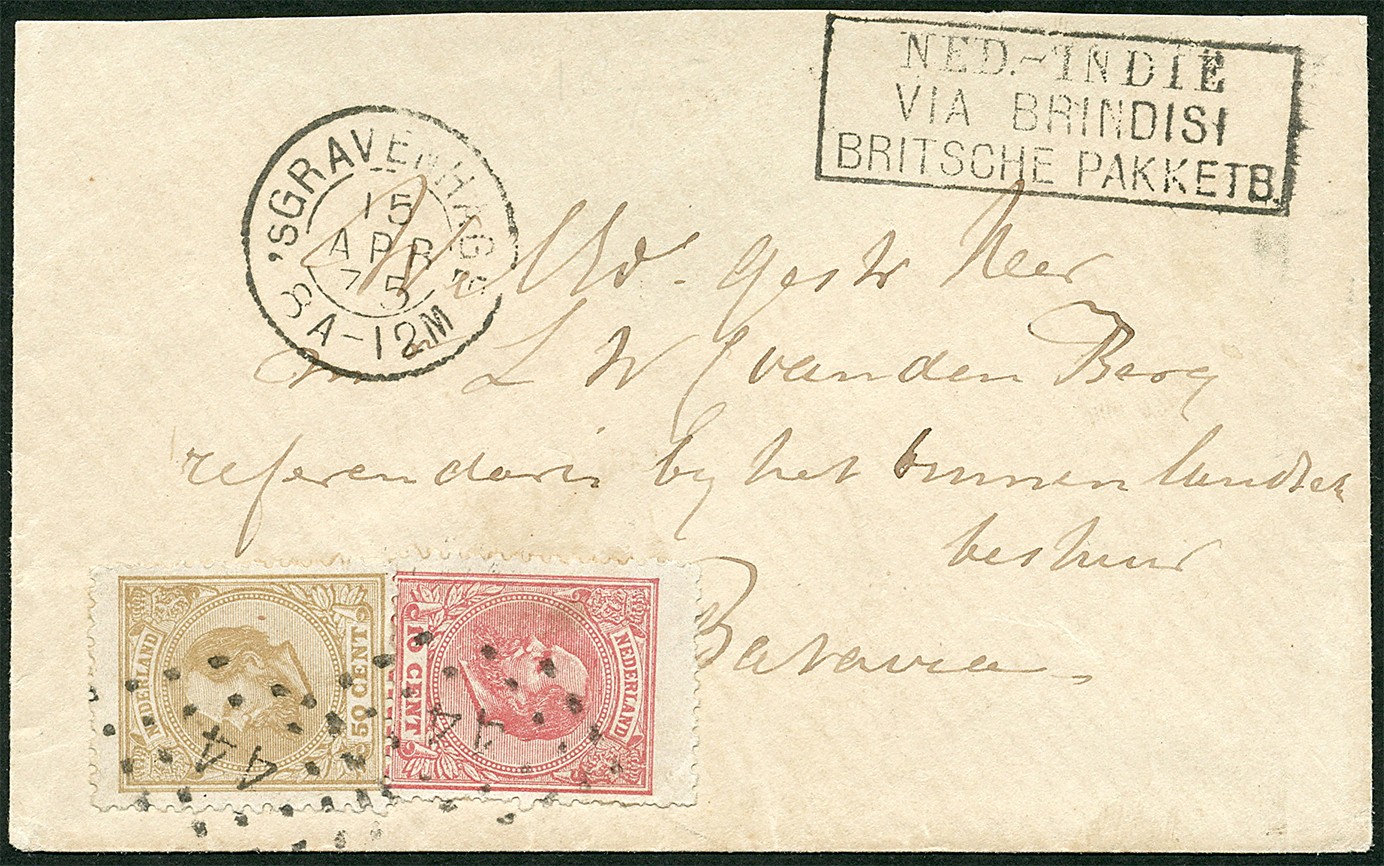 NED.-INDIE
VIA BRINDISI
BRITSCHE PAKKETB.
'SGRAVENHAGE
15
APR
75
8A-12M
WelEd. gestr Heer
L W C van den Berg
referendaris by het binnenlandsch
bestuur
Batavia
NEDERLAND
50 CENT
10 CENT
NEDERLAND
44
44